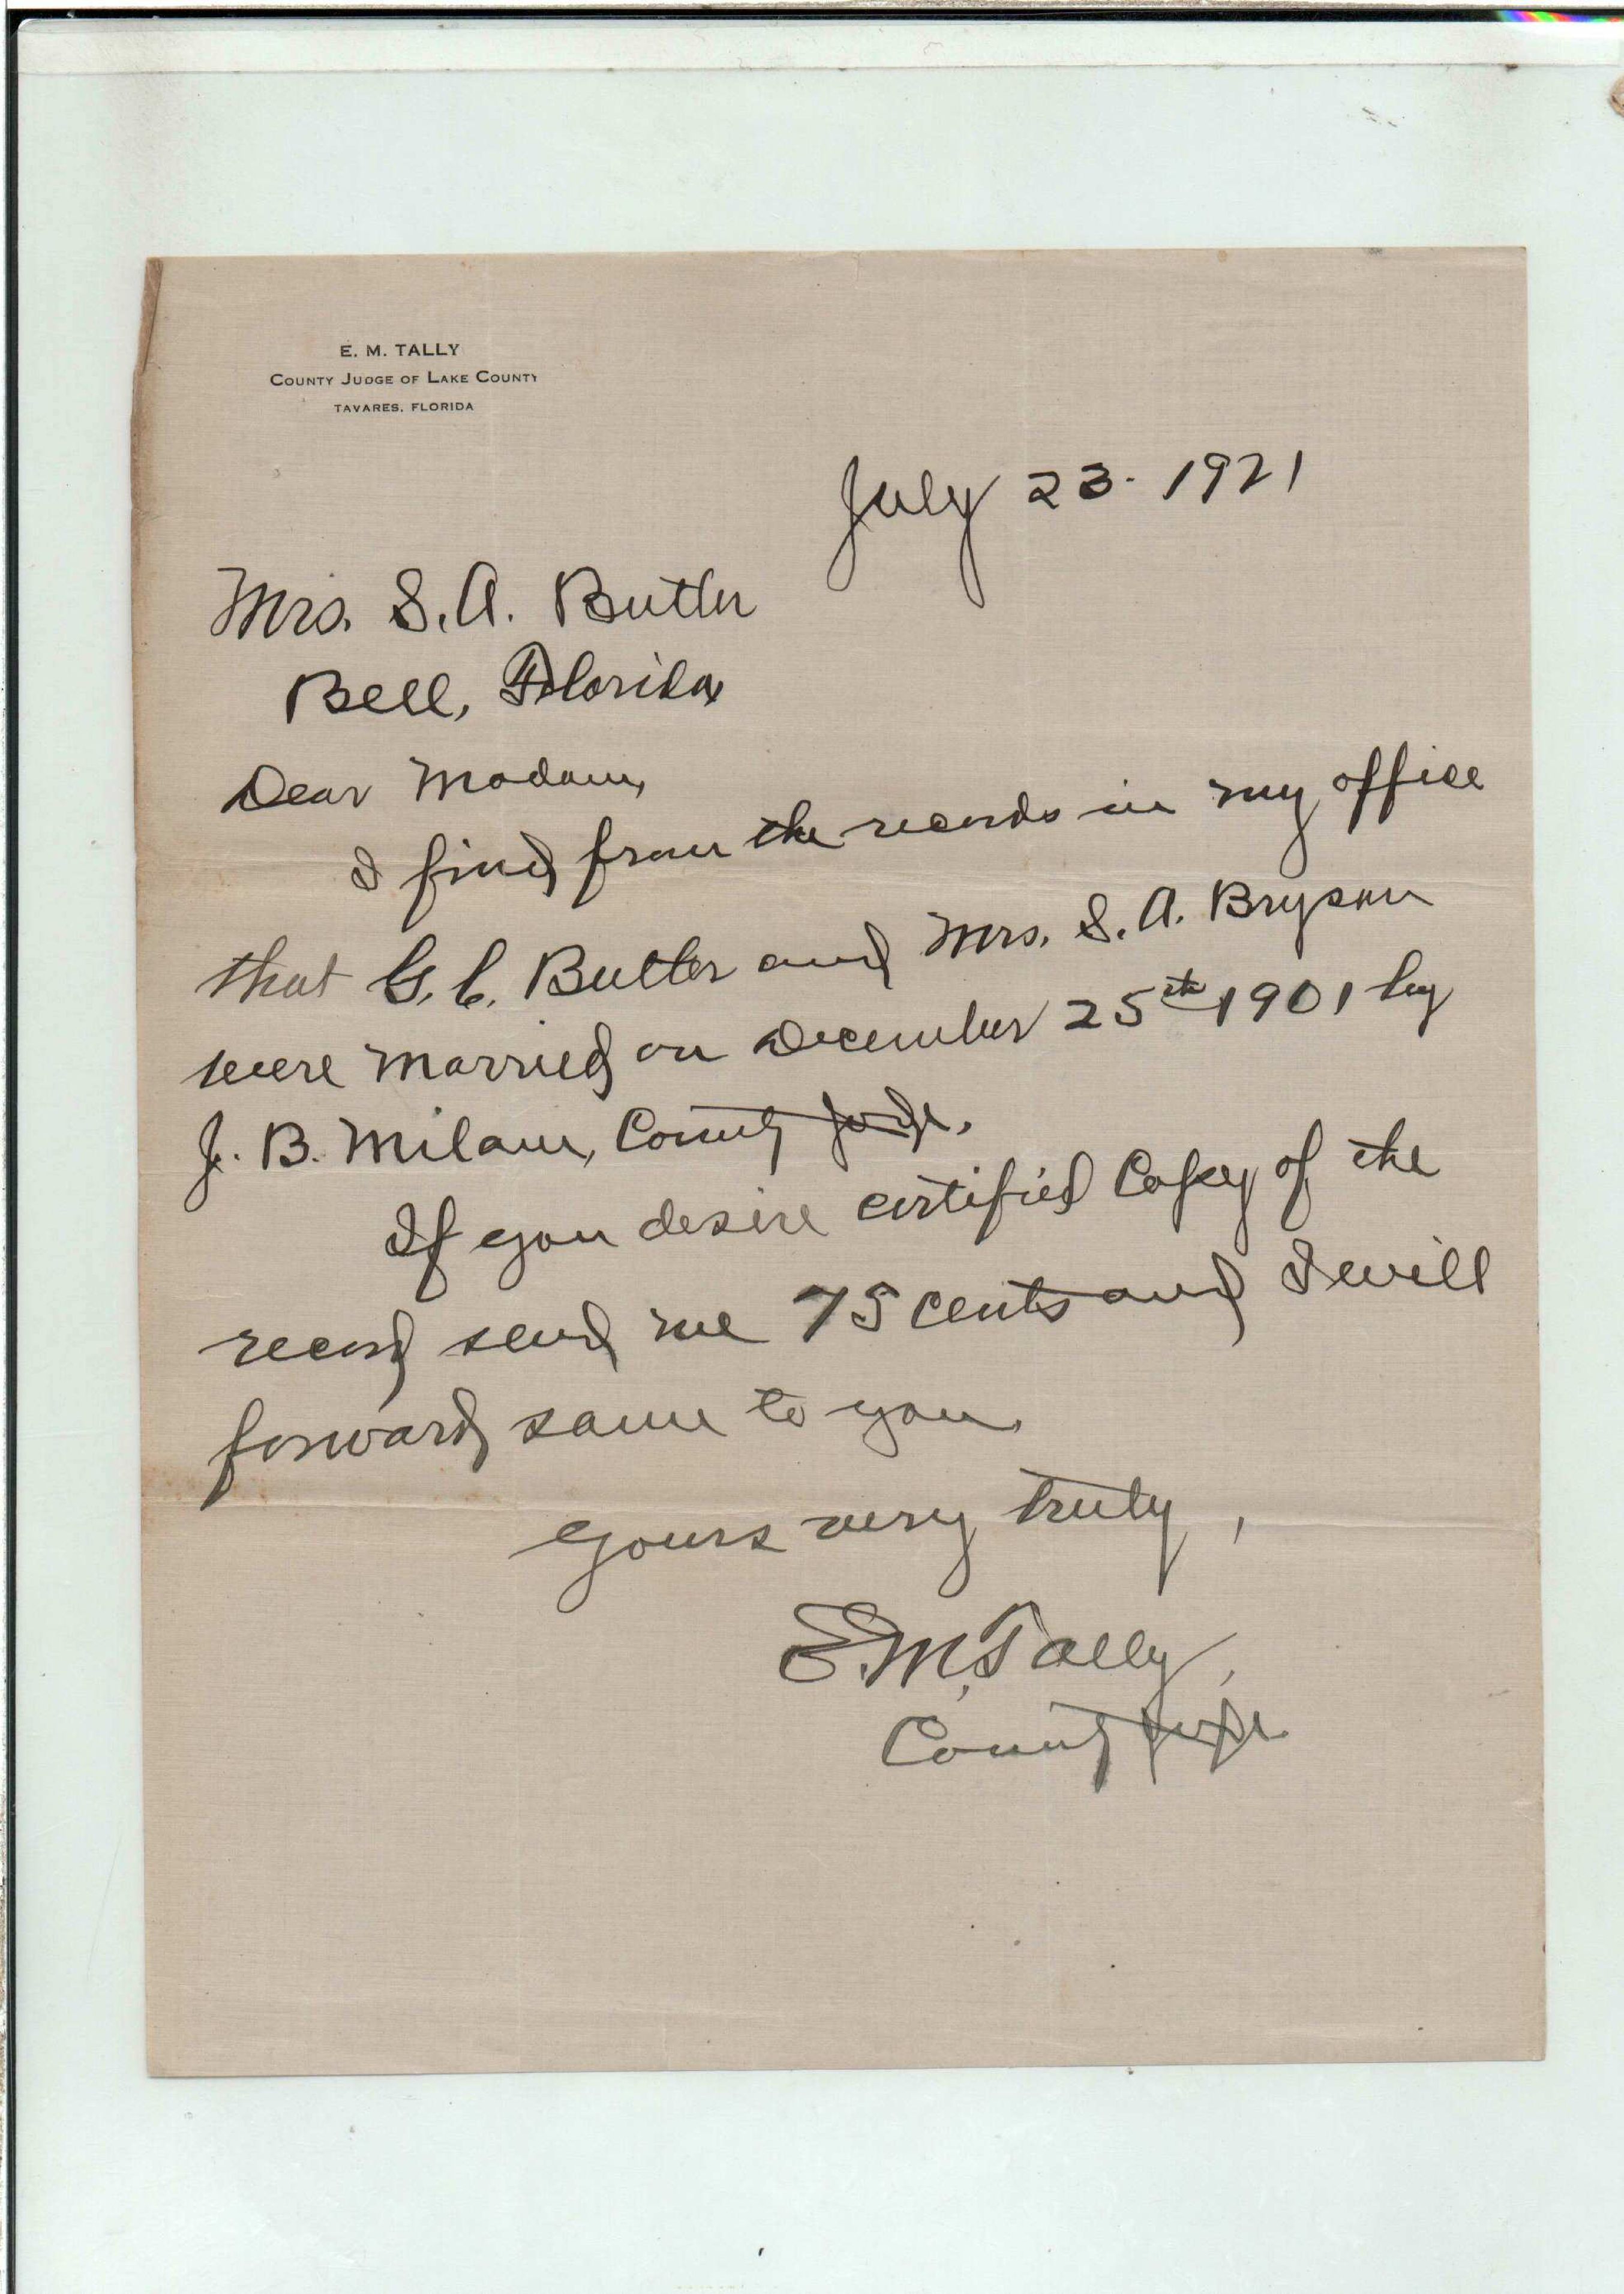 E. M. TALLY
COUNTY JUDGE OF LAKE COUNTY
TAVARES, FLORIDA
July 23. 1921
Mrs. S. A. Butler
Bell, Florida
Dear Madam,
I find from the records in my office
that G. C. Butler and Mrs. S. A. Bryson
were married on December 25th 1901 by
J. B. Milam, County Judge.
If you desire certified Copy of the
record send me 75 cents and I will
forward same to you.
Yours very truly,
E. M. Tally,
County Judge